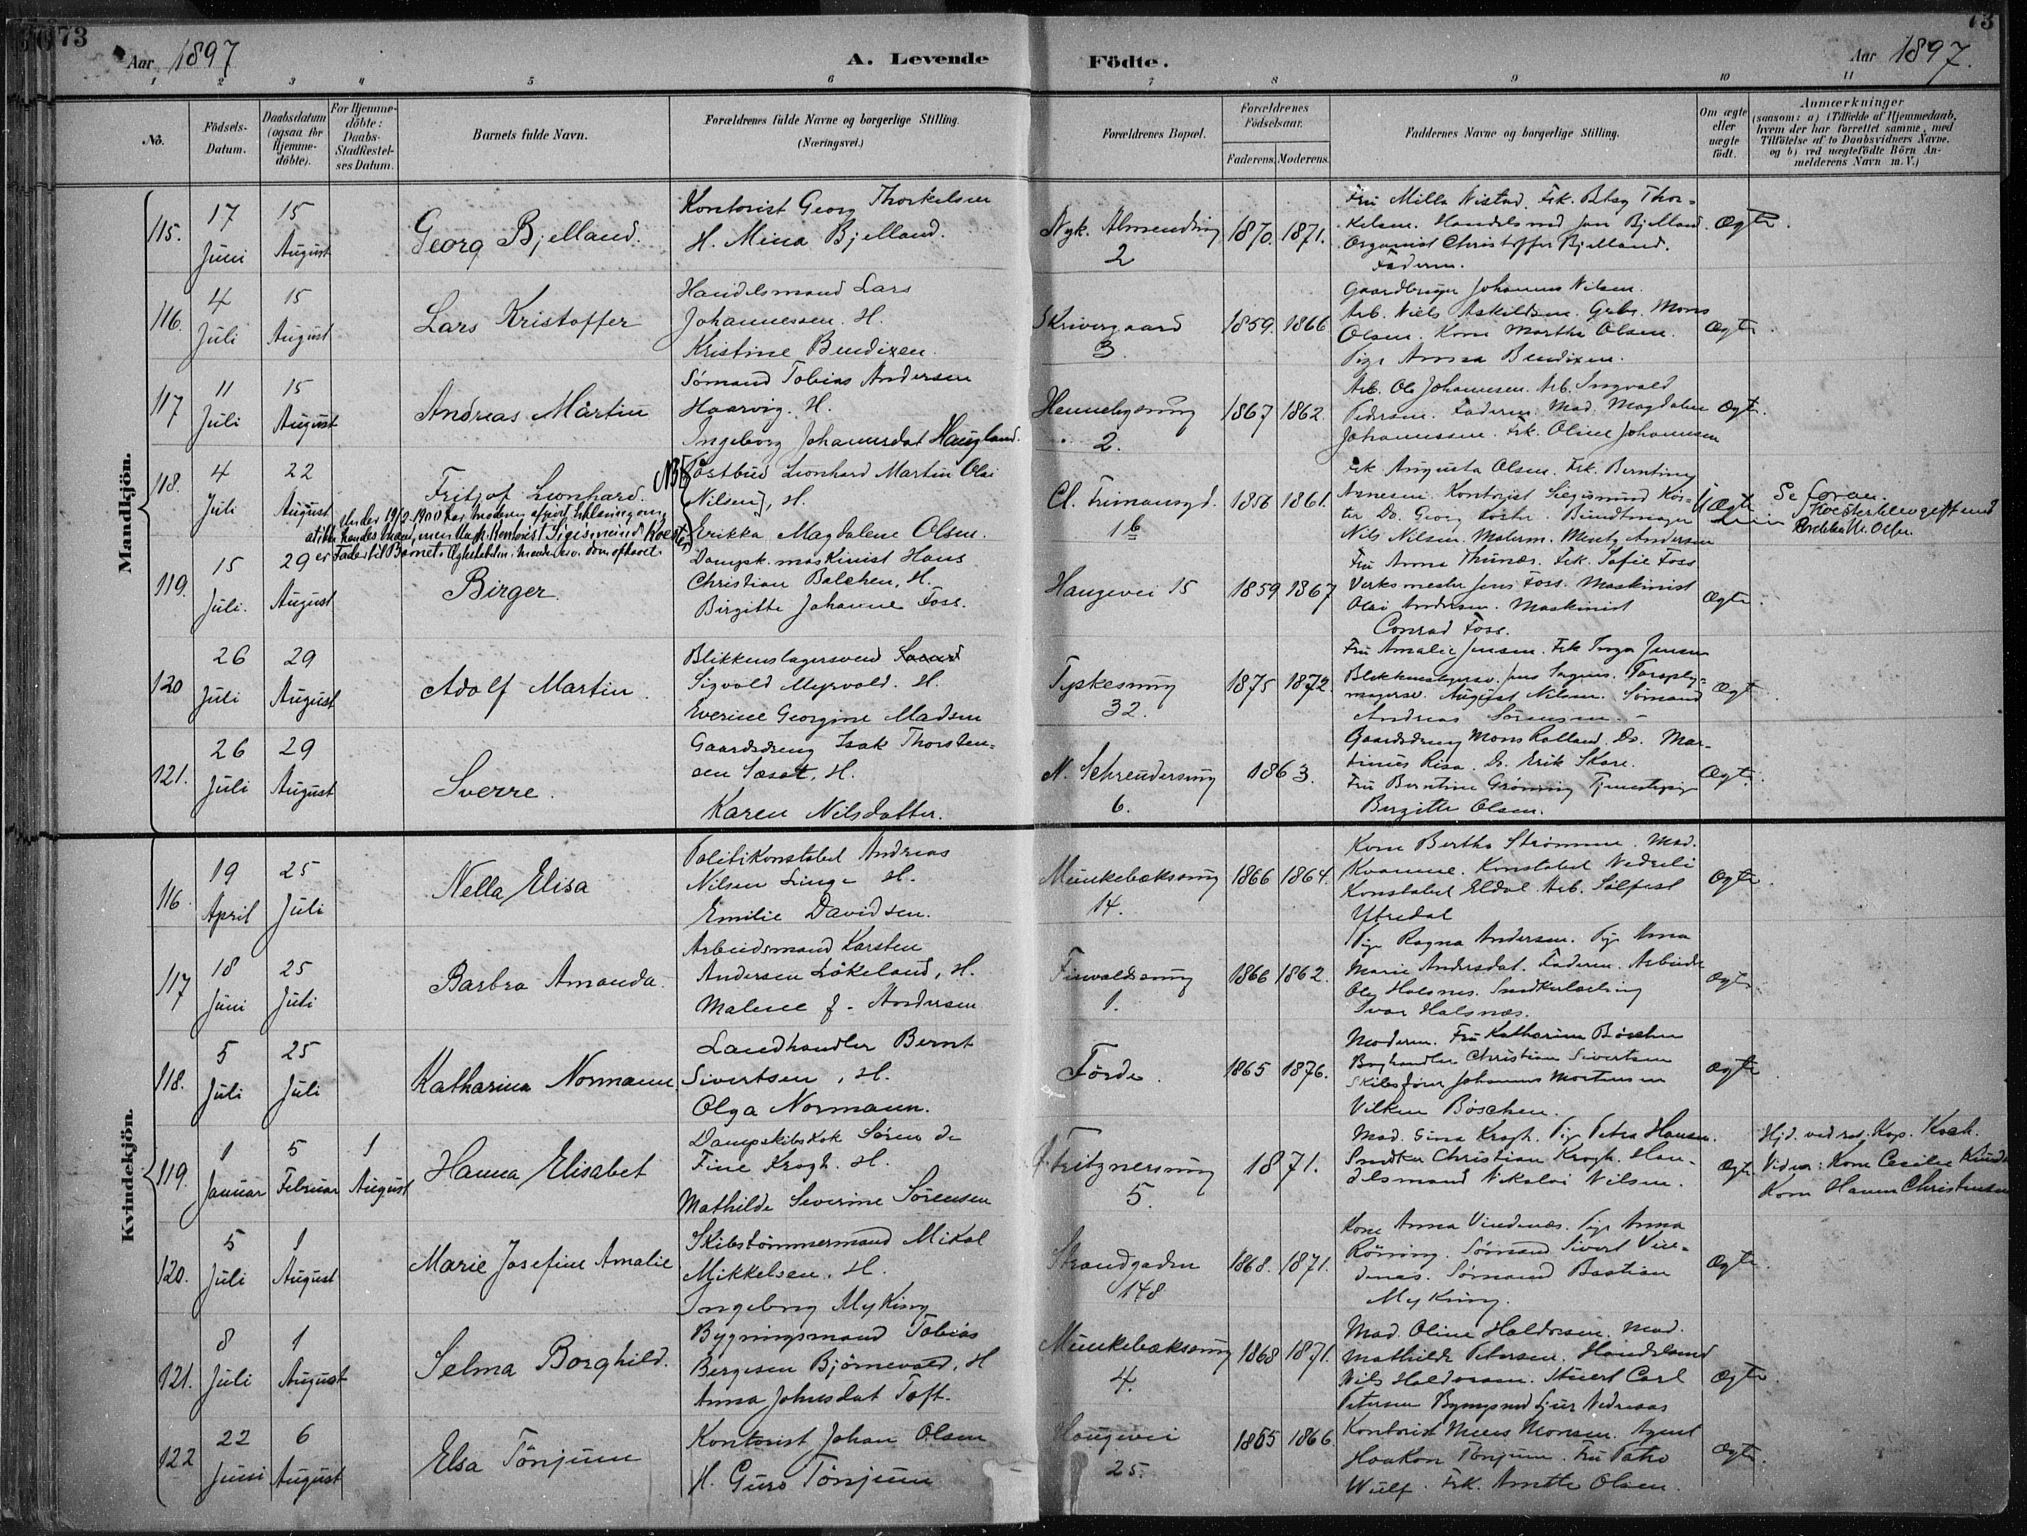 73
73
Aar 1897
A. Levende
Födte.
Aar 1897.
1 2 3 4 5 6 7 8 9 10 11
No.
Födsels-
Datum.
Daabsdatum
(ogsaa for
Hjemme-
döbte).
For Hjemme-
döbte:
Daabs-
Stadfæstel-
ses Datum.
Barnets fulde Navn.
Forældrenes fulde Navne og borgerlige Stilling.
(Næringsvei.)
Forældrenes Bopæl.
Forældrenes
Födselsaar.
Faderens. Moderens.
Faddernes Navne og borgerlige Stilling.
Om ægte
eller
uægte
födt.
Anmærkninger
(saasom: a) i Tilfælde af Hjemmedaab,
hvem der har forrettet samme, med
Tilföielse af to Daabsvidners Navne,
og b) ved uægtefödte Börn An-
melderens Navn m. V.)
Mandkjön.
115.
17
Juni
15
August
Georg Bjelland.
Kontorist Georg Thorkelsen
H. Mina Bjelland.
Nyk. Almending
2
1870. 1871.
Fru Milla Nistad. Frk. Betsy Thor-
kelsen. Handelsmd Jan Bjelland.
Organist Christoffer Bjelland.
Faderen.
Ægte.
116.
4
Juli
15
August
Lars Kristoffer
Handelsmand Lars
Johannessen. H.
Kristine Bendixen.
Skrivergaard
3.
1859. 1866
Gaardbruger Johannes Nilsen.
Arb. Niels Askildsen. Gbr. Mons
Olsen. Kone Marthe Olsen.
Pige Anna Bendixen.
Ægte.
117
11
Juli
15
August
Andreas Martin
Sömand Tobias Andersen
Haarvig. H.
Ingeborg Johannesdat Haugland.
Hennebysmug
2.
1867 1862.
Arb. Ole Johannesen. Arb. Ingvald
Pedersen. Faderen. Mad. Magdalene
Johannessen. Frk. Oline Johannesen
Ægte.
118.
4
Juli
22
August
Fritjof Leonhard.
NB
Postbud Leonhard Martin Olai
Nilsen, H.
Erikka Magdalene Olsen.
Under 19/2 1900 har moderen afgivet erklæring om,
at ikke hendes mand, men Ungk. Kontorist Sigismund Koester
er Fader til Barnet.
Cl. Frimansgd.
16
1856 1861.
Frk Augusta Olsen. Frk. Berntine
Arnesen. Kontorist Siegismund Kös-
ter Do. Georg Koster Bundtmager
Nils Nilsen. Malerm. Mentz Andersen
U Ægte
Se foran.
119.
15
Juli.
29
August
Birger.
Dampsk. maskinist Hans
Christian Balchen, H.
Birgitte Johanne Foss.
Haugevei 15
1859 1867
Fru Anna Thunæs. Frk. Sofie Foss
Verksmester Jens Foss. Maskinist
Olai Andersen. Maskinist
Conrad Foss.
Ægte.
120
26
Juli
29
August
Adolf Martin.
Blikkenslagersvend
Sigvald Myrvold. H.
Everine Georgine Madsen
Tyskesmug
32.
1875 1872.
Fru Amalie Jensen. Frk Inga Jensen
August Nilsen. Sömand
Andreas Sörensen.
Ægte.
121.
26
Juli
29
August
Sverre.
Gaardsdreng Isak Thorsten-
sen Sæsat, H.
Karen Nilsdatter.
N. Schreudersmug
6.
1863.
Gaardsdreng Mons Rolland. Do. Mar-
tinus Risa. Do. Erik Skare.
Fru Berntine Grönning Tjenestepige
Bergitte Olsen.
Ægte.
Kvindekjön.
116.
19
April
25
Juli
Nella Elisa
Politikonstabel Andreas
Nilsen Linge H.
Emilie Davidsen.
Munkebæksmug
14.
1866 1864.
Kone Bertha Strömme. Mad.
Kvamme. Konstabel Nedreli
Konstabel Eldal Arb. Sölfest
Ytredal
Ægte.
117
18
Juni
25
Juli
Barbra Amanda.
Arbeidsmand Karsten
Andersen Lökeland, H.
Malene f. Andersen
Finvaldsmug
1.
1866 1862.
Pige Ragna Andersen. Pige Anna
Marie Andersdat. Faderen. Arbeider
Ole Halsnes. Snedkerlærling
Ivar Halsnæs.
Ægte.
118.
5
Juli
25
Juli
Katharina Normann
Landhandler Bernt
Sivertsen, H.
Olga Normann.
Förde.
1865 1876.
Moderen. Fru Katharina Böschen
Boghandler Christian Sivertsen
Skibsförer Johannes Mortensen
Vilken Böschen.
Ægte.
119.
1
Januar
5
Februar
1
August
Hanna Elisabet
Dampskibskok Sören de
Fine Krogh. H.
Mathilde Severine Sörensen
Fritznersmug
5.
1871.
Mad. Gina Krogh. Pige Petra Hansen.
Snedker Christian Krogh. Han-
delsmand Nikolai Nilsen.
Ægte
Hjd. ved res. Kap. Koch.
Vidner: Kone Cecilie
Kone Hanna Christensen
120.
5
Juli
1
August
Marie Josefine Amalie
Skibstömmermand Mikal
Mikkelsen. H.
Ingeborg Myking
Strandgaden
148
1868. 1871.
Kone Anna Vindenæs. Pige Anna
Röning. Sömand Sivert Vin-
denæs. Sömand Bastian
Myking.
Ægte.
121.
8
Juli
1
August
Selma Borghild.
Bygningsmand Tobias
Bergesen Björnevald, H.
Anna Johnsdat Toft.
Munkebæksmug
4.
1868 1871.
Mad. Oline Haldorsen. Mad.
Mathilde Petersen. Handelsmd
Nils Haldorsen. Stuert Carl
Petersen Bygningsmd Sjur Nedreaas
Ægte.
122
22
Juni
6
August
Elsa Tönjum
Kontorist Johan Olsen
H. Guro Tönjum
Haugevei
25.
1865 1866.
Kontorist Mons Monsen. Agent
Haakon Tönjum. Fru
Wulf. Frk. Anette Olsen.
Ægte.